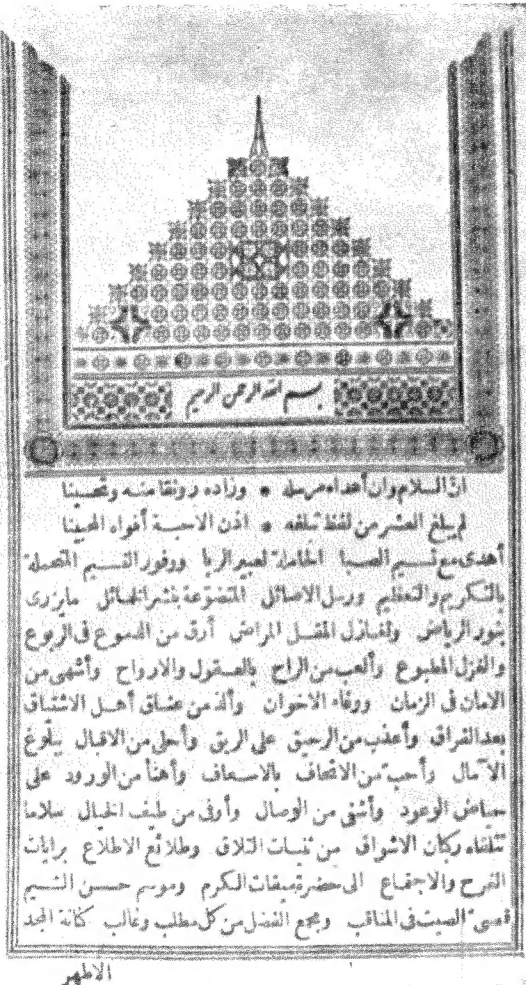 بسم الله الرحمن الرحيم
انّ السلام وان أهداه مرسله * وزاده رونقا منه وتحسينا
لم يبلغ العشر من لفظ تبلغه * اذن الاحبة أفواه المحبينا
أهدى مع نسيم الصبا الحاملة لعبير الربا ووفور التسنيم المتحملة
بالتكريم والتعظيم ورسل الاصائل المتضوّعة بنشر الخمائل مايزرى
بنور الرياض ولغازل المقل المراض أرق من الدموع فى الربوع
والغزل المطبوع وألعب من الراح بالعقول والارواح وأشهى من
الامان فى الزمان ووفاء الاخوان وألذ من عناق أهل الاشتياق
بعد الفراق وأعذب من الرحيق على الريق وأحلى من الاقبال ببلوغ
الآمال وأحب من الاتحاف بالاسعاف وأهنأ من الورود على
حياض الوعود وأشهى من الوصال وأوفى من طيف الخيال سلاما
تتلقاه ركبان الاشواق من ثنيات التلاق وطلائع الاطلاع برايات
الفرح والاجتماع الى حضرة ميقات الكرم وموسم حسن الشيم
قصىّ الصيت فى المناقب ومجمع الفضل من كل مطلب وغالب كنانة المجد
الاطهر